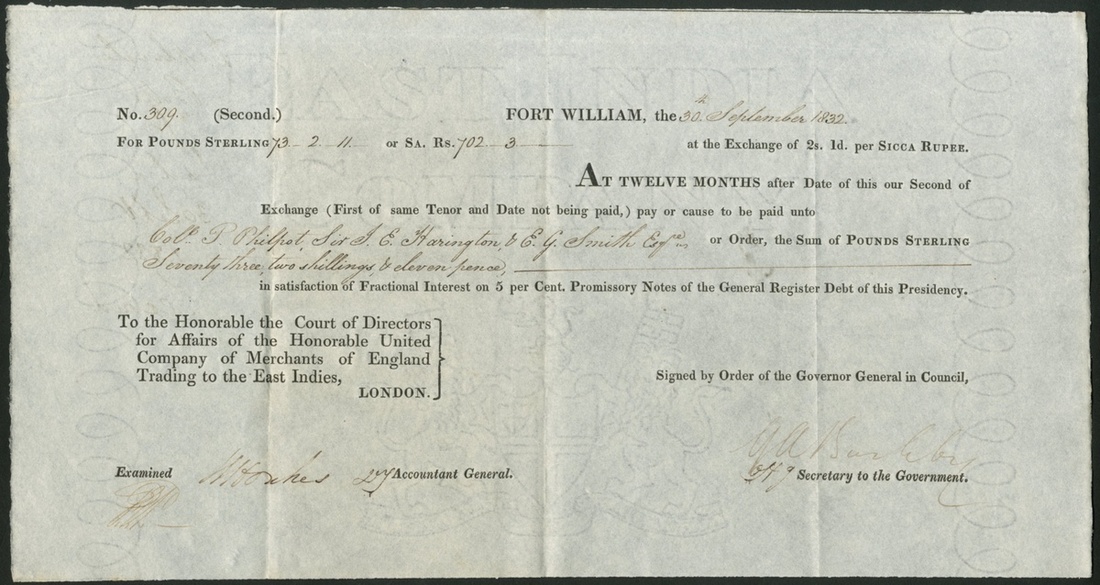 No. 309. (Second.) FORT WILLIAM, the 30th September 1832
FOR POUNDS STERLING 73 - 2 - 11 - or SA. RS. 702 - 3 - at the Exchange of 2s. 1d. per SICCA RUPEE.
AT TWELVE MONTHS after Date of this our Second of
Exchange (First of same Tenor and Date not being paid,) pay or cause to be paid unto
Coll. P. Philpot, Sir J. E. Harington, & E. G. Smith Esqre. or Order, the Sum of POUNDS STERLING
Seventy three, two shillings, & eleven pence,
in satisfaction of Fractional Interest on 5 per Cent. Promissory Notes of the General Register Debt of this Presidency.
To the Honorable the Court of Directors
for Affairs of the Honorable United
Company of Merchants of England
Trading to the East Indies,
LONDON.
Signed by Order of the Governor General in Council,
G A Bushby
Examined Dy Accountant General.
Offg Secretary to the Government.